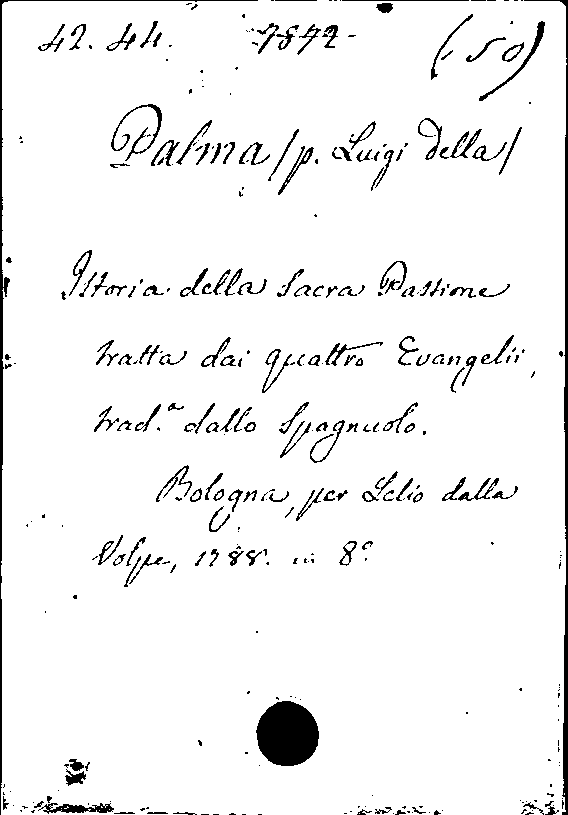 42. 44. 7872 (-50)
Palma /p. Luigi Della/
Istoria della Sacra Passione
tratta dai quattro Evangelii,
trad.ª dallo Spagnuolo.
Bologna, per Lelio dalla
Volpe, 1788. in 8°